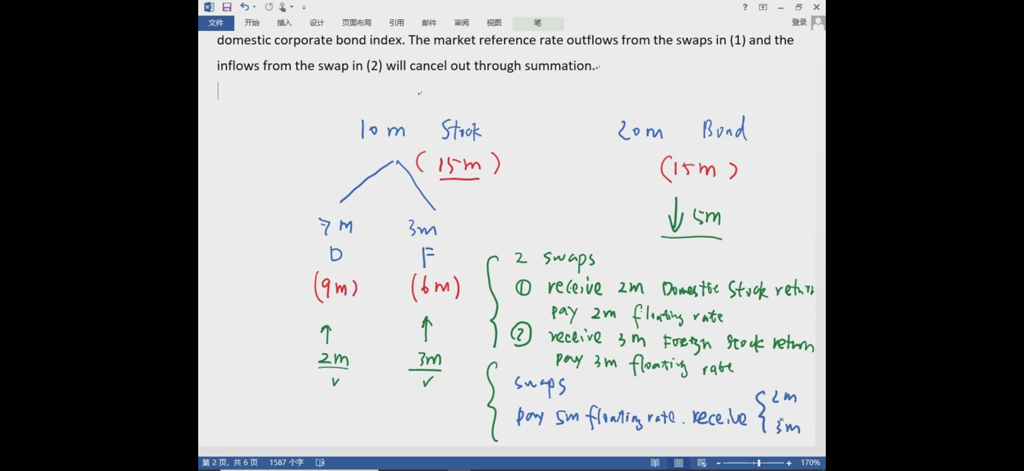 文件 开始 插入 设计 页面布局 引用 邮件 审阅 视图 笔 登录
domestic corporate bond index. The market reference rate outflows from the swaps in (1) and the
inflows from the swap in (2) will cancel out through summation.
10 m Stock 20m Bond
(15m) (15m)
5m
7 M 3m
D F
(9m) (6m)
2 swaps
① receive 2m Domestic Stock return
pay 2m floating rate
② receive 3m Foreign Stock return
pay 3m floating rate
2m 3m
swaps
pay 5m floating rate. receive 2m
3m
第 2 页，共 6 页 1587 个字 170%